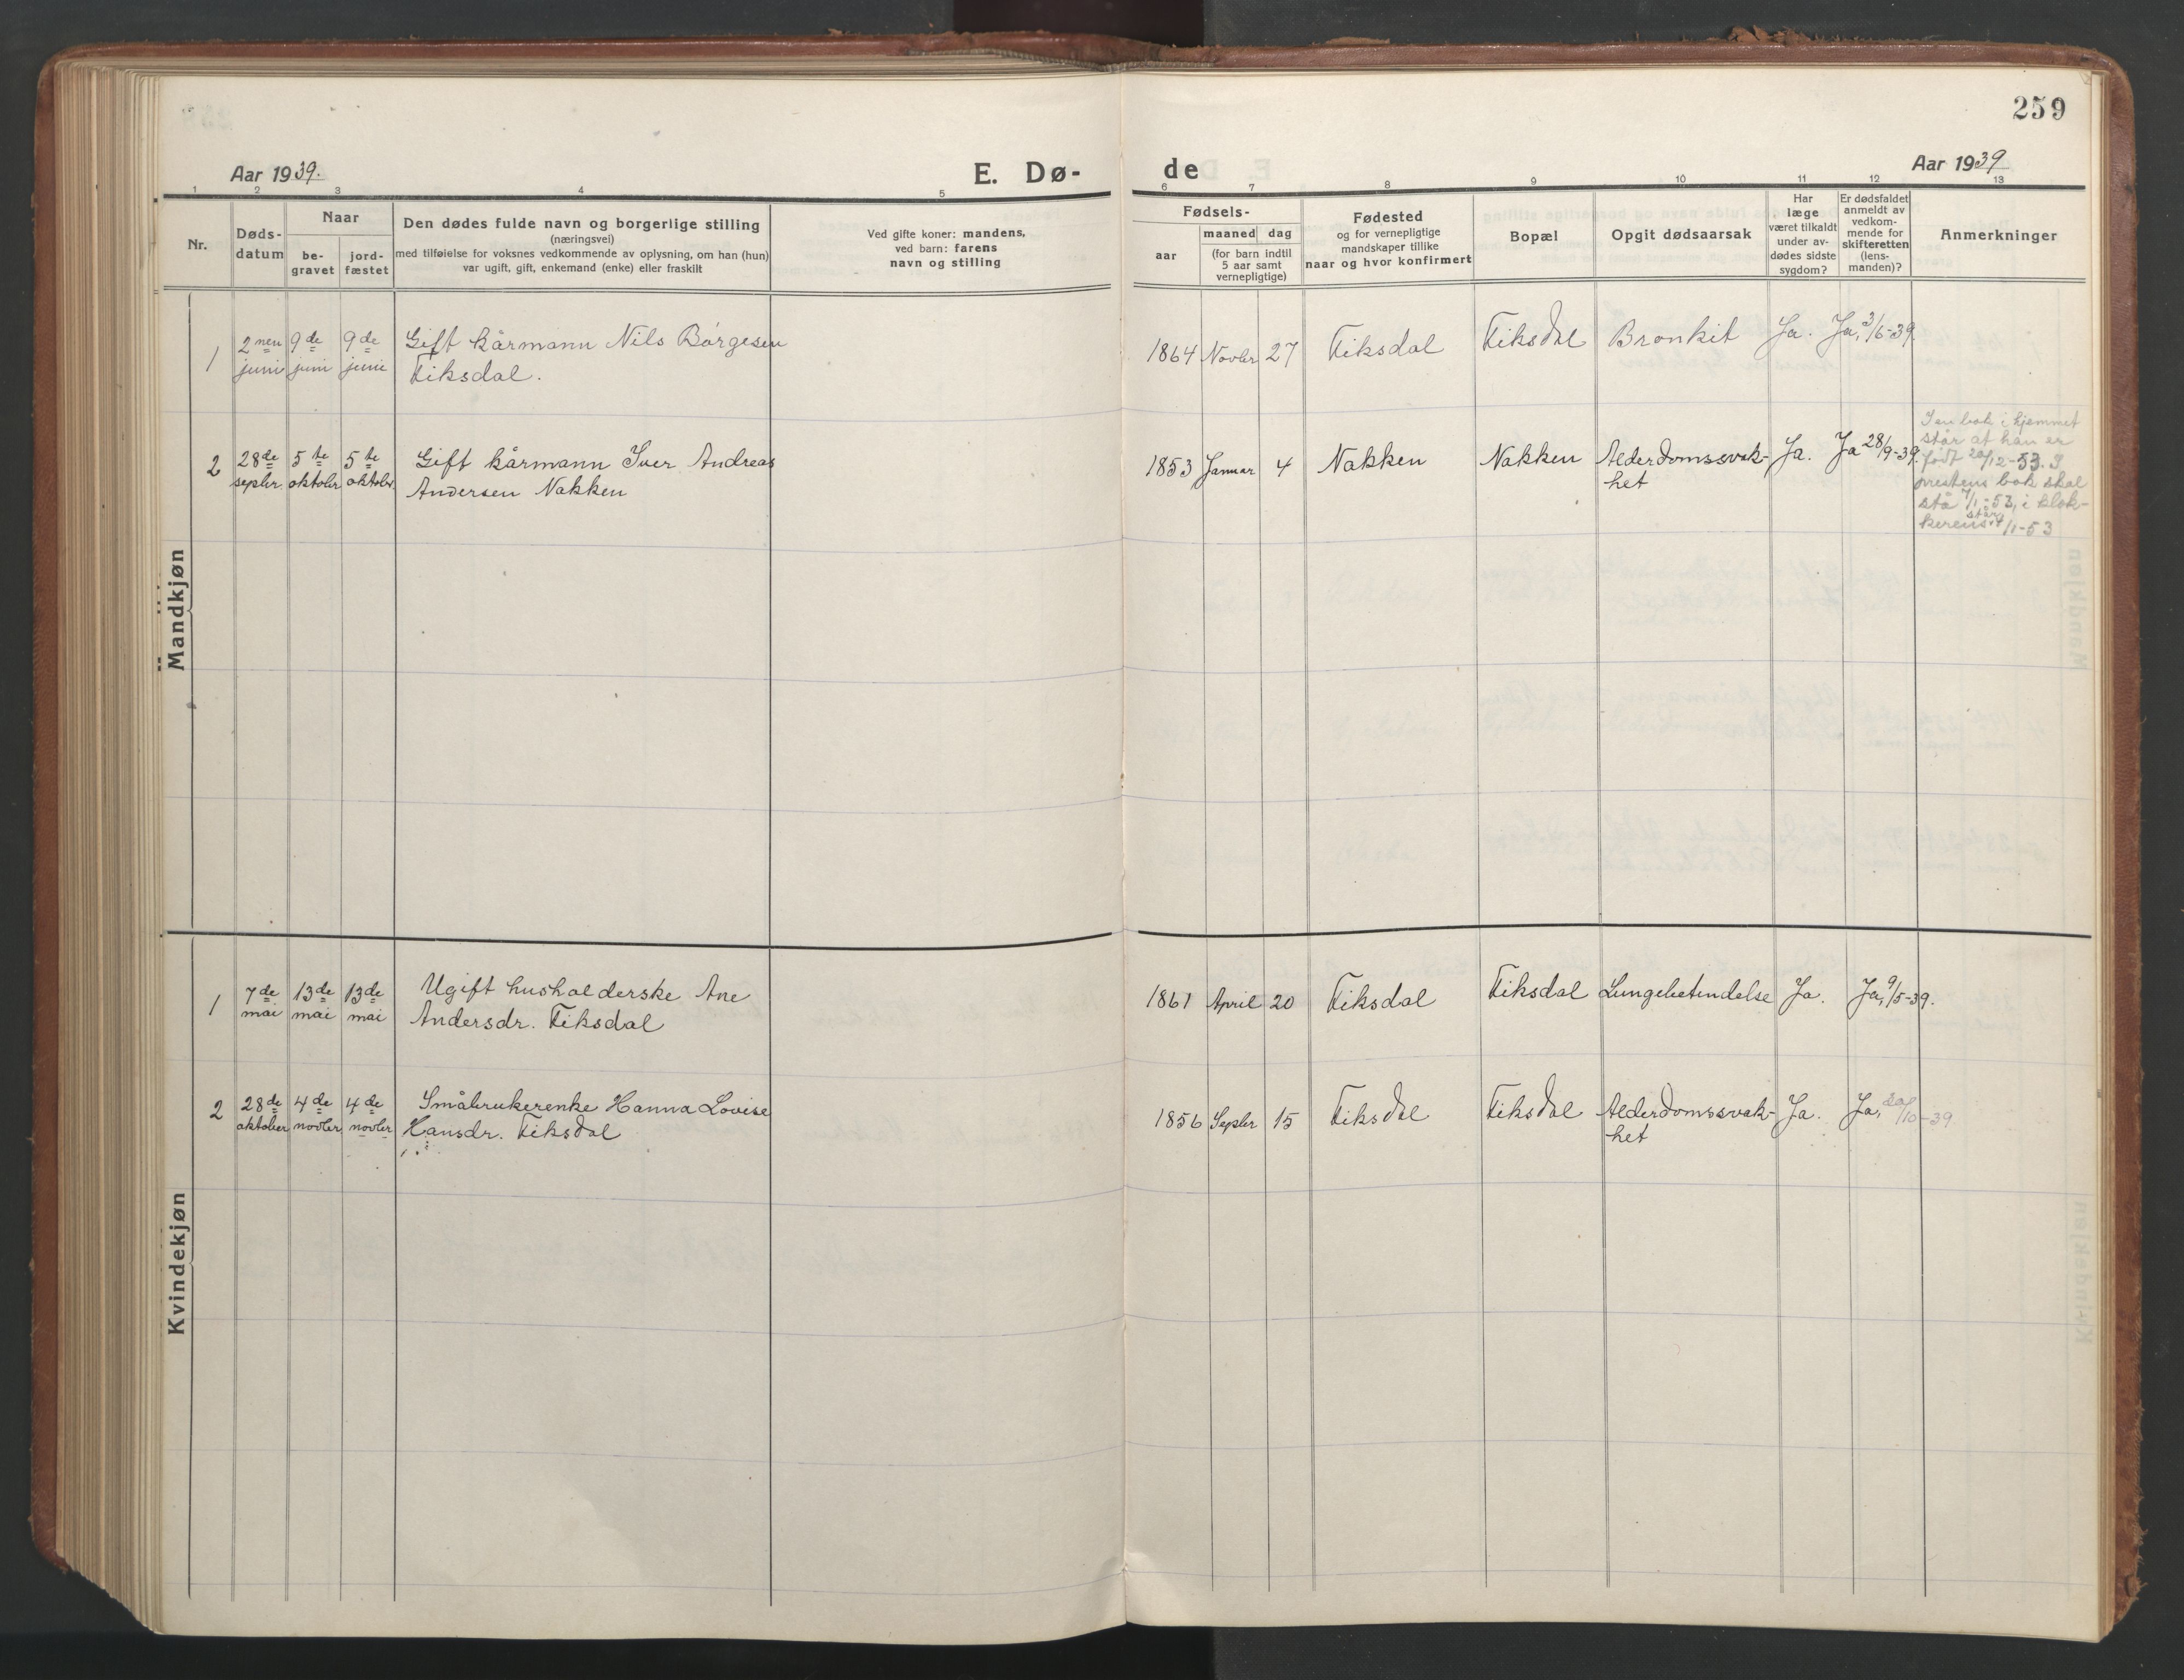 259
Aar 1939.
E. Dø-
de
Aar 1939
1 2 3 4 5 6 7 8 9 10 11 12 13
Nr.
Døds-
datum
Naar
be-
gravet
jord-
fæstet
Den dødes fulde navn og borgerlige stilling
(næringsvei)
med tilføielse for voksnes vedkommende av oplysning, om han (hun)
var ugift, gift, enkemand (enke) eller fraskilt
Ved gifte koner: mandens,
ved barn: farens
navn og stilling
Fødsels-
aar
maaned dag
(for barn indtil
5 aar samt
vernepligtige)
Fødested
og for vernepligtige
mandskaper tillike
naar og hvor konfirmert
Bopæl
Opgit dødsaarsak
Har
læge
været tilkaldt
under av-
dødes sidste
sygdom?
Er dødsfaldet
anmeldt av
vedkom-
mende for
skifteretten
(lens-
manden)?
Anmerkninger
Mandkjøn
1
2nen
juni
9de
juni
9de
juni
Gift kårmann Nils Børgesen
Fiksdal.
1864 Novbr 27
Fiksdal
Fiksdal
Bronkit
Ja.
Ja, 3/6-39.
2
28de
septbr.
5te
oktober
5te
oktober.
Gift kårmann Iver Andreas
Andersen Nakken
1853 Januar 4
Nakken
Nakken
Alderdomssvak-
het
Ja.
Ja 28/9-39.
I en bok i hjemmet
står at han er
født 20/12-53. I
prestens bok skal
stå 7/1-53, i klok-
kerens står 4/1-53
Kvindekjøn
1
7de
mai
13de
mai
13de
mai
Ugift husholderske Ane
Andersdr. Fiksdal
1861 April 20
Fiksdal
Fiksdal
Lungebetendelse
Ja.
Ja, 9/5-39.
2
28de
oktober
4de
novbr
4de
novbr
Småbrukerenke Hanna Lovise
Hansdr. Fiksdal
1856 Septbr 15
Fiksdal
Fiksdal
Alderdomssvak-
het
Ja.
Ja, /10-39